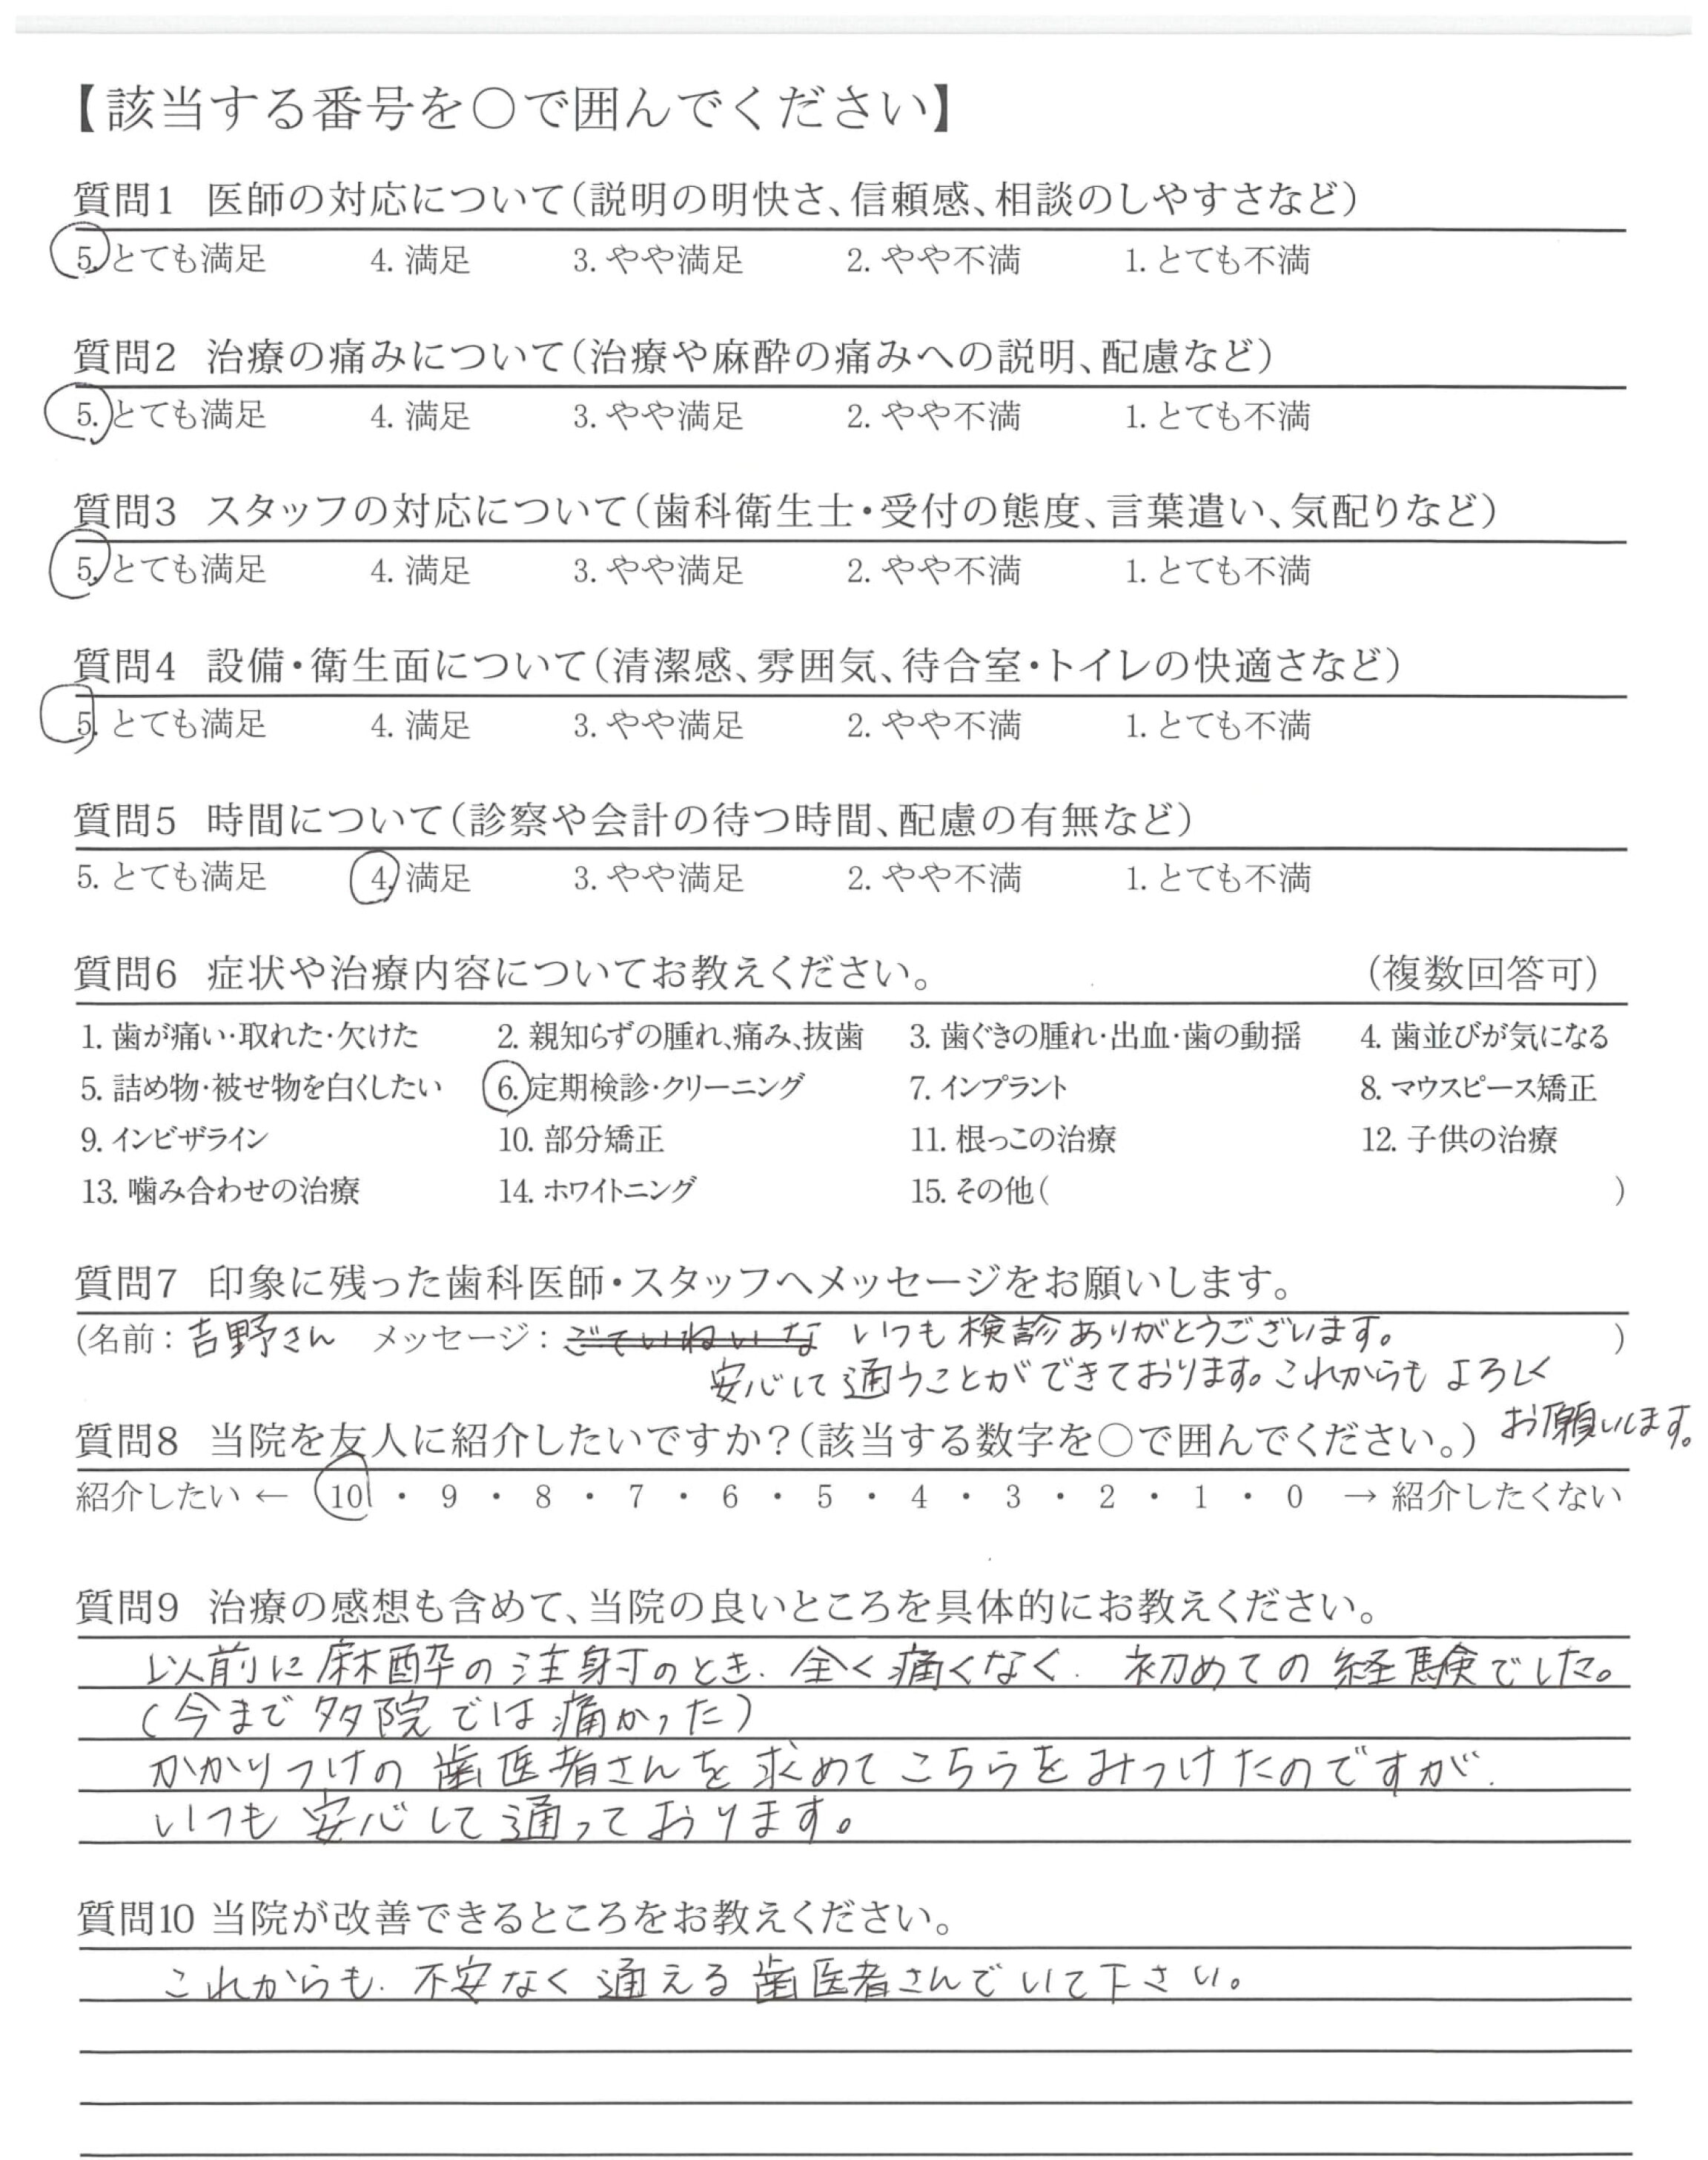 【該当する番号を○で囲んでください】
質問1 医師の対応について(説明の明快さ、信頼感、相談のしやすさなど)
5. とても満足 4. 満足 3. やや満足 2. やや不満 1. とても不満
質問2 治療の痛みについて(治療や麻酔の痛みへの説明、配慮など)
5. とても満足 4. 満足 3. やや満足 2. やや不満 1. とても不満
質問3 スタッフの対応について(歯科衛生士・受付の態度、言葉遣い、気配りなど)
5. とても満足 4. 満足 3. やや満足 2. やや不満 1. とても不満
質問4 設備・衛生面について(清潔感、雰囲気、待合室・トイレの快適さなど)
5. とても満足 4. 満足 3. やや満足 2. やや不満 1. とても不満
質問5 時間について(診察や会計の待つ時間、配慮の有無など)
5. とても満足 4. 満足 3. やや満足 2. やや不満 1. とても不満
質問6 症状や治療内容についてお教えください。 (複数回答可)
1. 歯が痛い・取れた・欠けた 2. 親知らずの腫れ、痛み、抜歯 3. 歯ぐきの腫れ・出血・歯の動揺 4. 歯並びが気になる
5. 詰め物・被せ物を白くしたい 6. 定期検診・クリーニング 7. インプラント 8. マウスピース矯正
9. インビザライン 10. 部分矯正 11. 根っこの治療 12. 子供の治療
13. 噛み合わせの治療 14. ホワイトニング 15. その他( )
質問7 印象に残った歯科医師・スタッフへメッセージをお願いします。
(名前：吉野さん メッセージ：ごていねいな いつも検診ありがとうございます。 )
安心して通うことができております。これからもよろしく
お願いします。
質問8 当院を友人に紹介したいですか？(該当する数字を○で囲んでください。)
紹介したい ← 10 ・ 9 ・ 8 ・ 7 ・ 6 ・ 5 ・ 4 ・ 3 ・ 2 ・ 1 ・ 0 → 紹介したくない
質問9 治療の感想も含めて、当院の良いところを具体的にお教えください。
以前に麻酔の注射のとき、全く痛くなく、初めての経験でした。
(今まで多院では痛かった)
かかりつけの歯医者さんを求めてこちらをみつけたのですが、
いつも安心して通っております。
質問10 当院が改善できるところをお教えください。
これからも、不安なく通える歯医者さんでいて下さい。